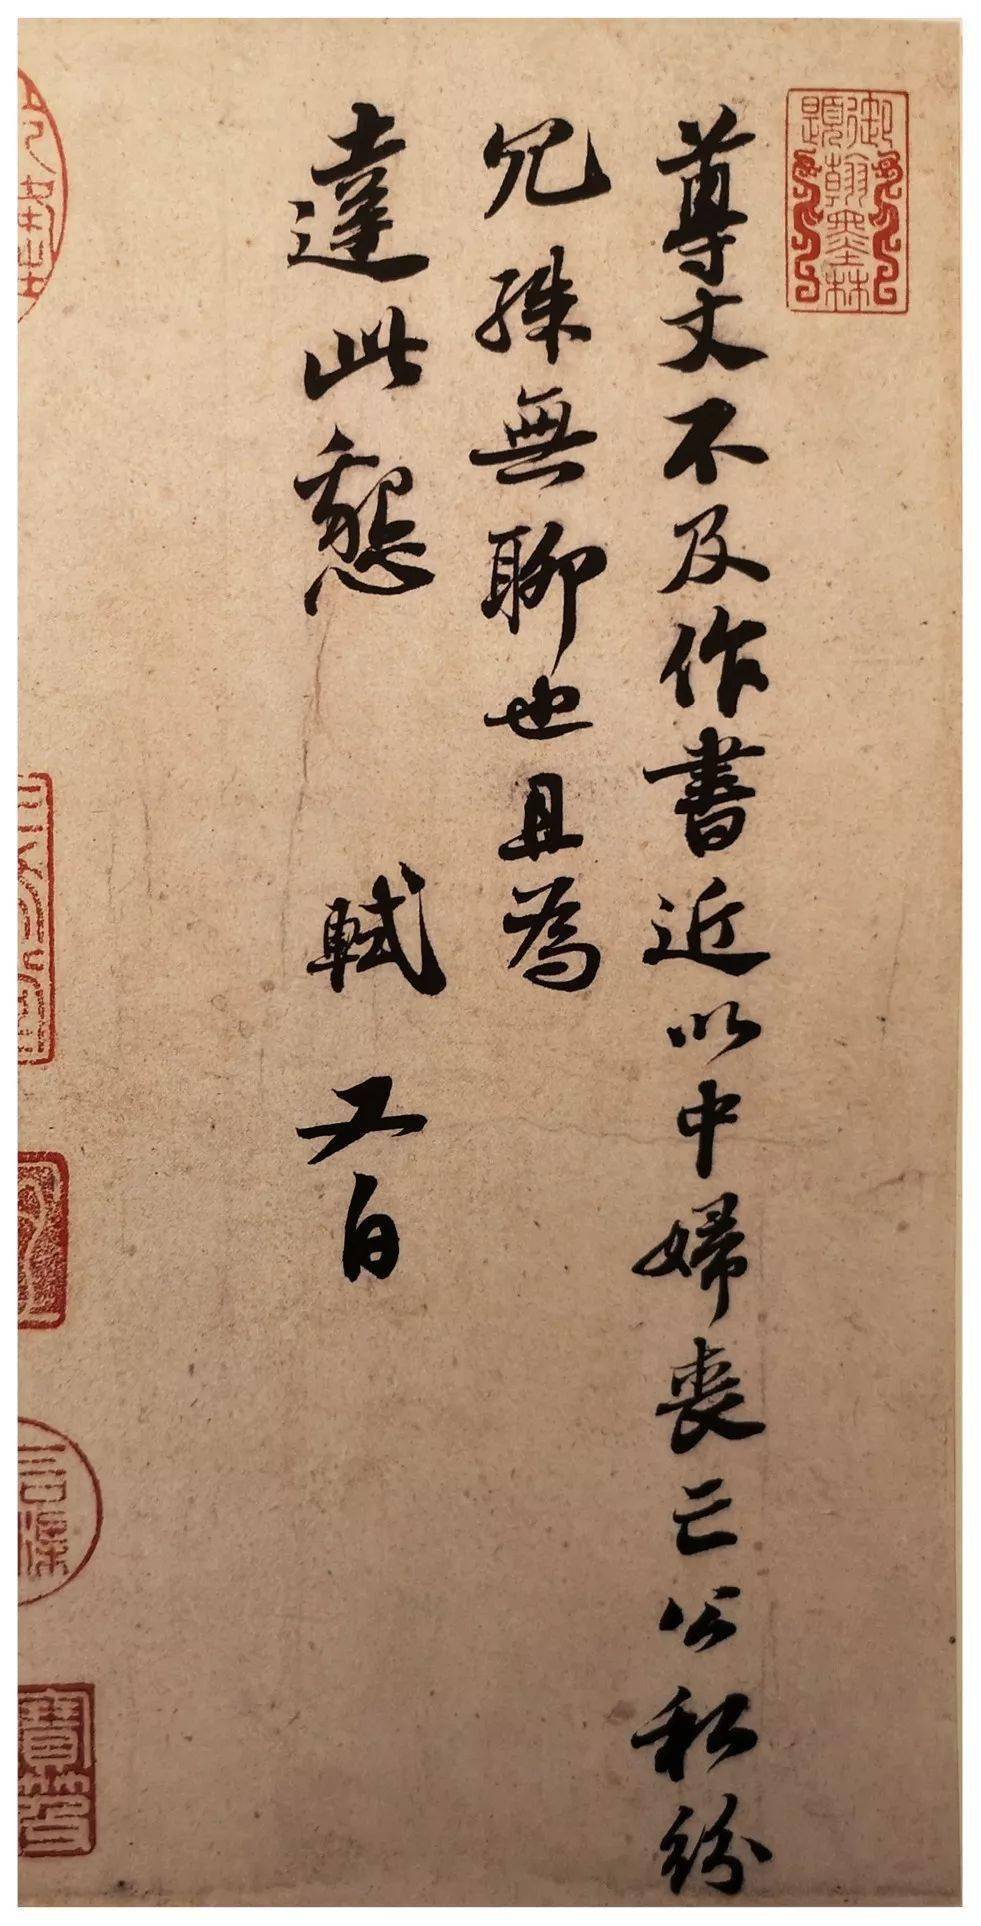 御題翰墨林
尊丈不及作書近以中婦喪亡公私紛
冗殊無聊也且為
達此懇 軾又白